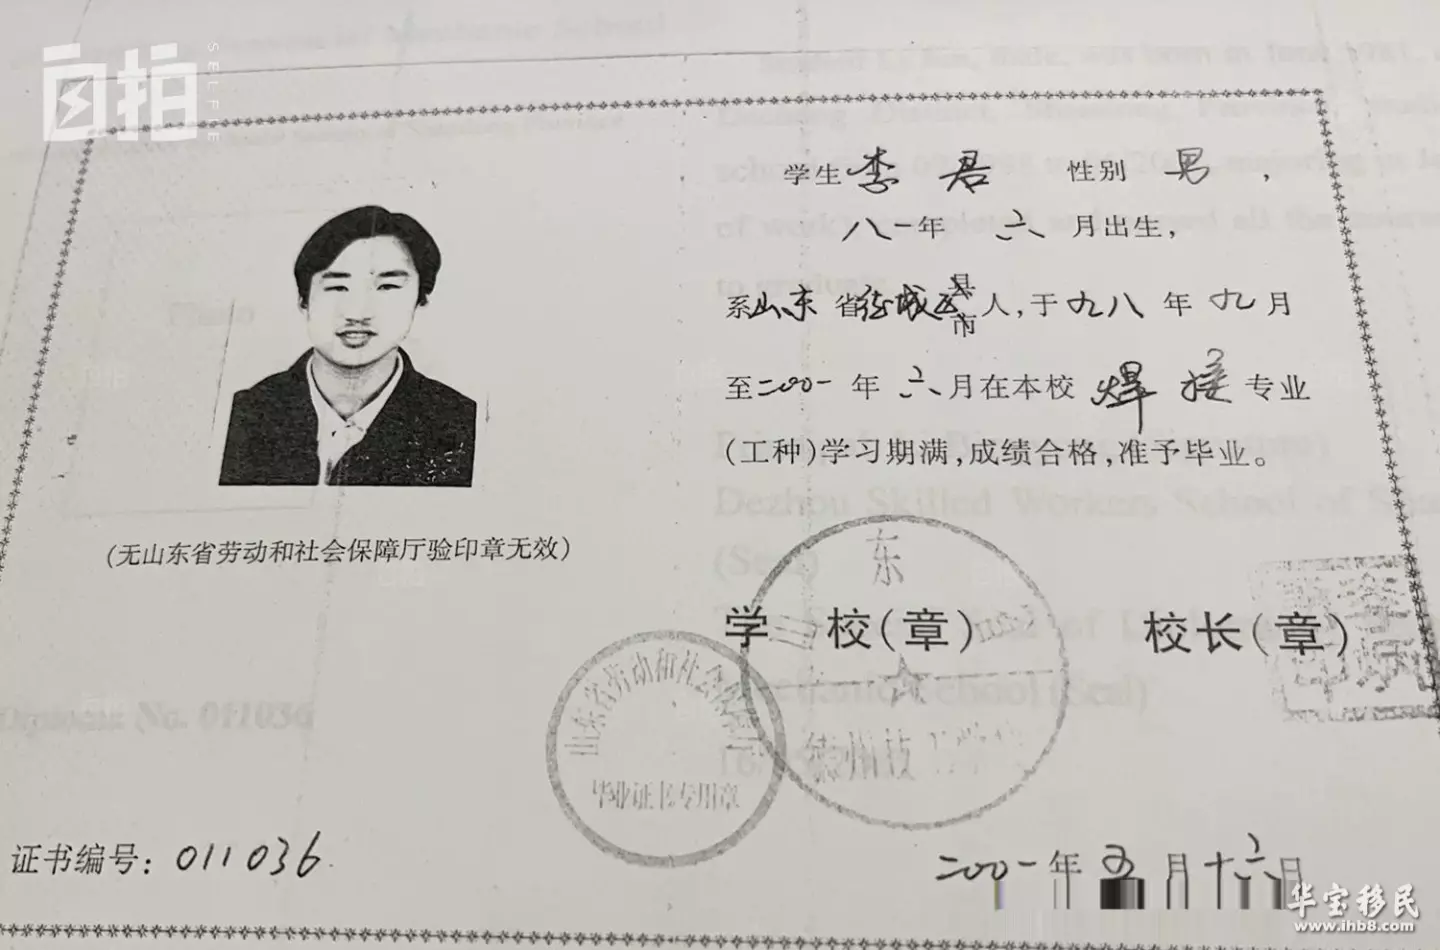 自拍
SELFIE
学生 李君 性别 男,
八一年 六 月出生,
系山东省德城区县市人,于九八年九月
至二00一年 六月在本校 焊接 专业
(工种)学习期满,成绩合格,准予毕业。
(无山东省劳动和社会保障厅验印章无效)
东
学 校(章) 校长(章)
山东省劳动和社会保障厅
毕业证书专用章
德州技工学校
Dezhou Skilled Workers School of
(Seal)
School (Seal)
No. 011036
证书编号:011036
二00一年 五 月十六日
华宝移民
www.ihb8.com